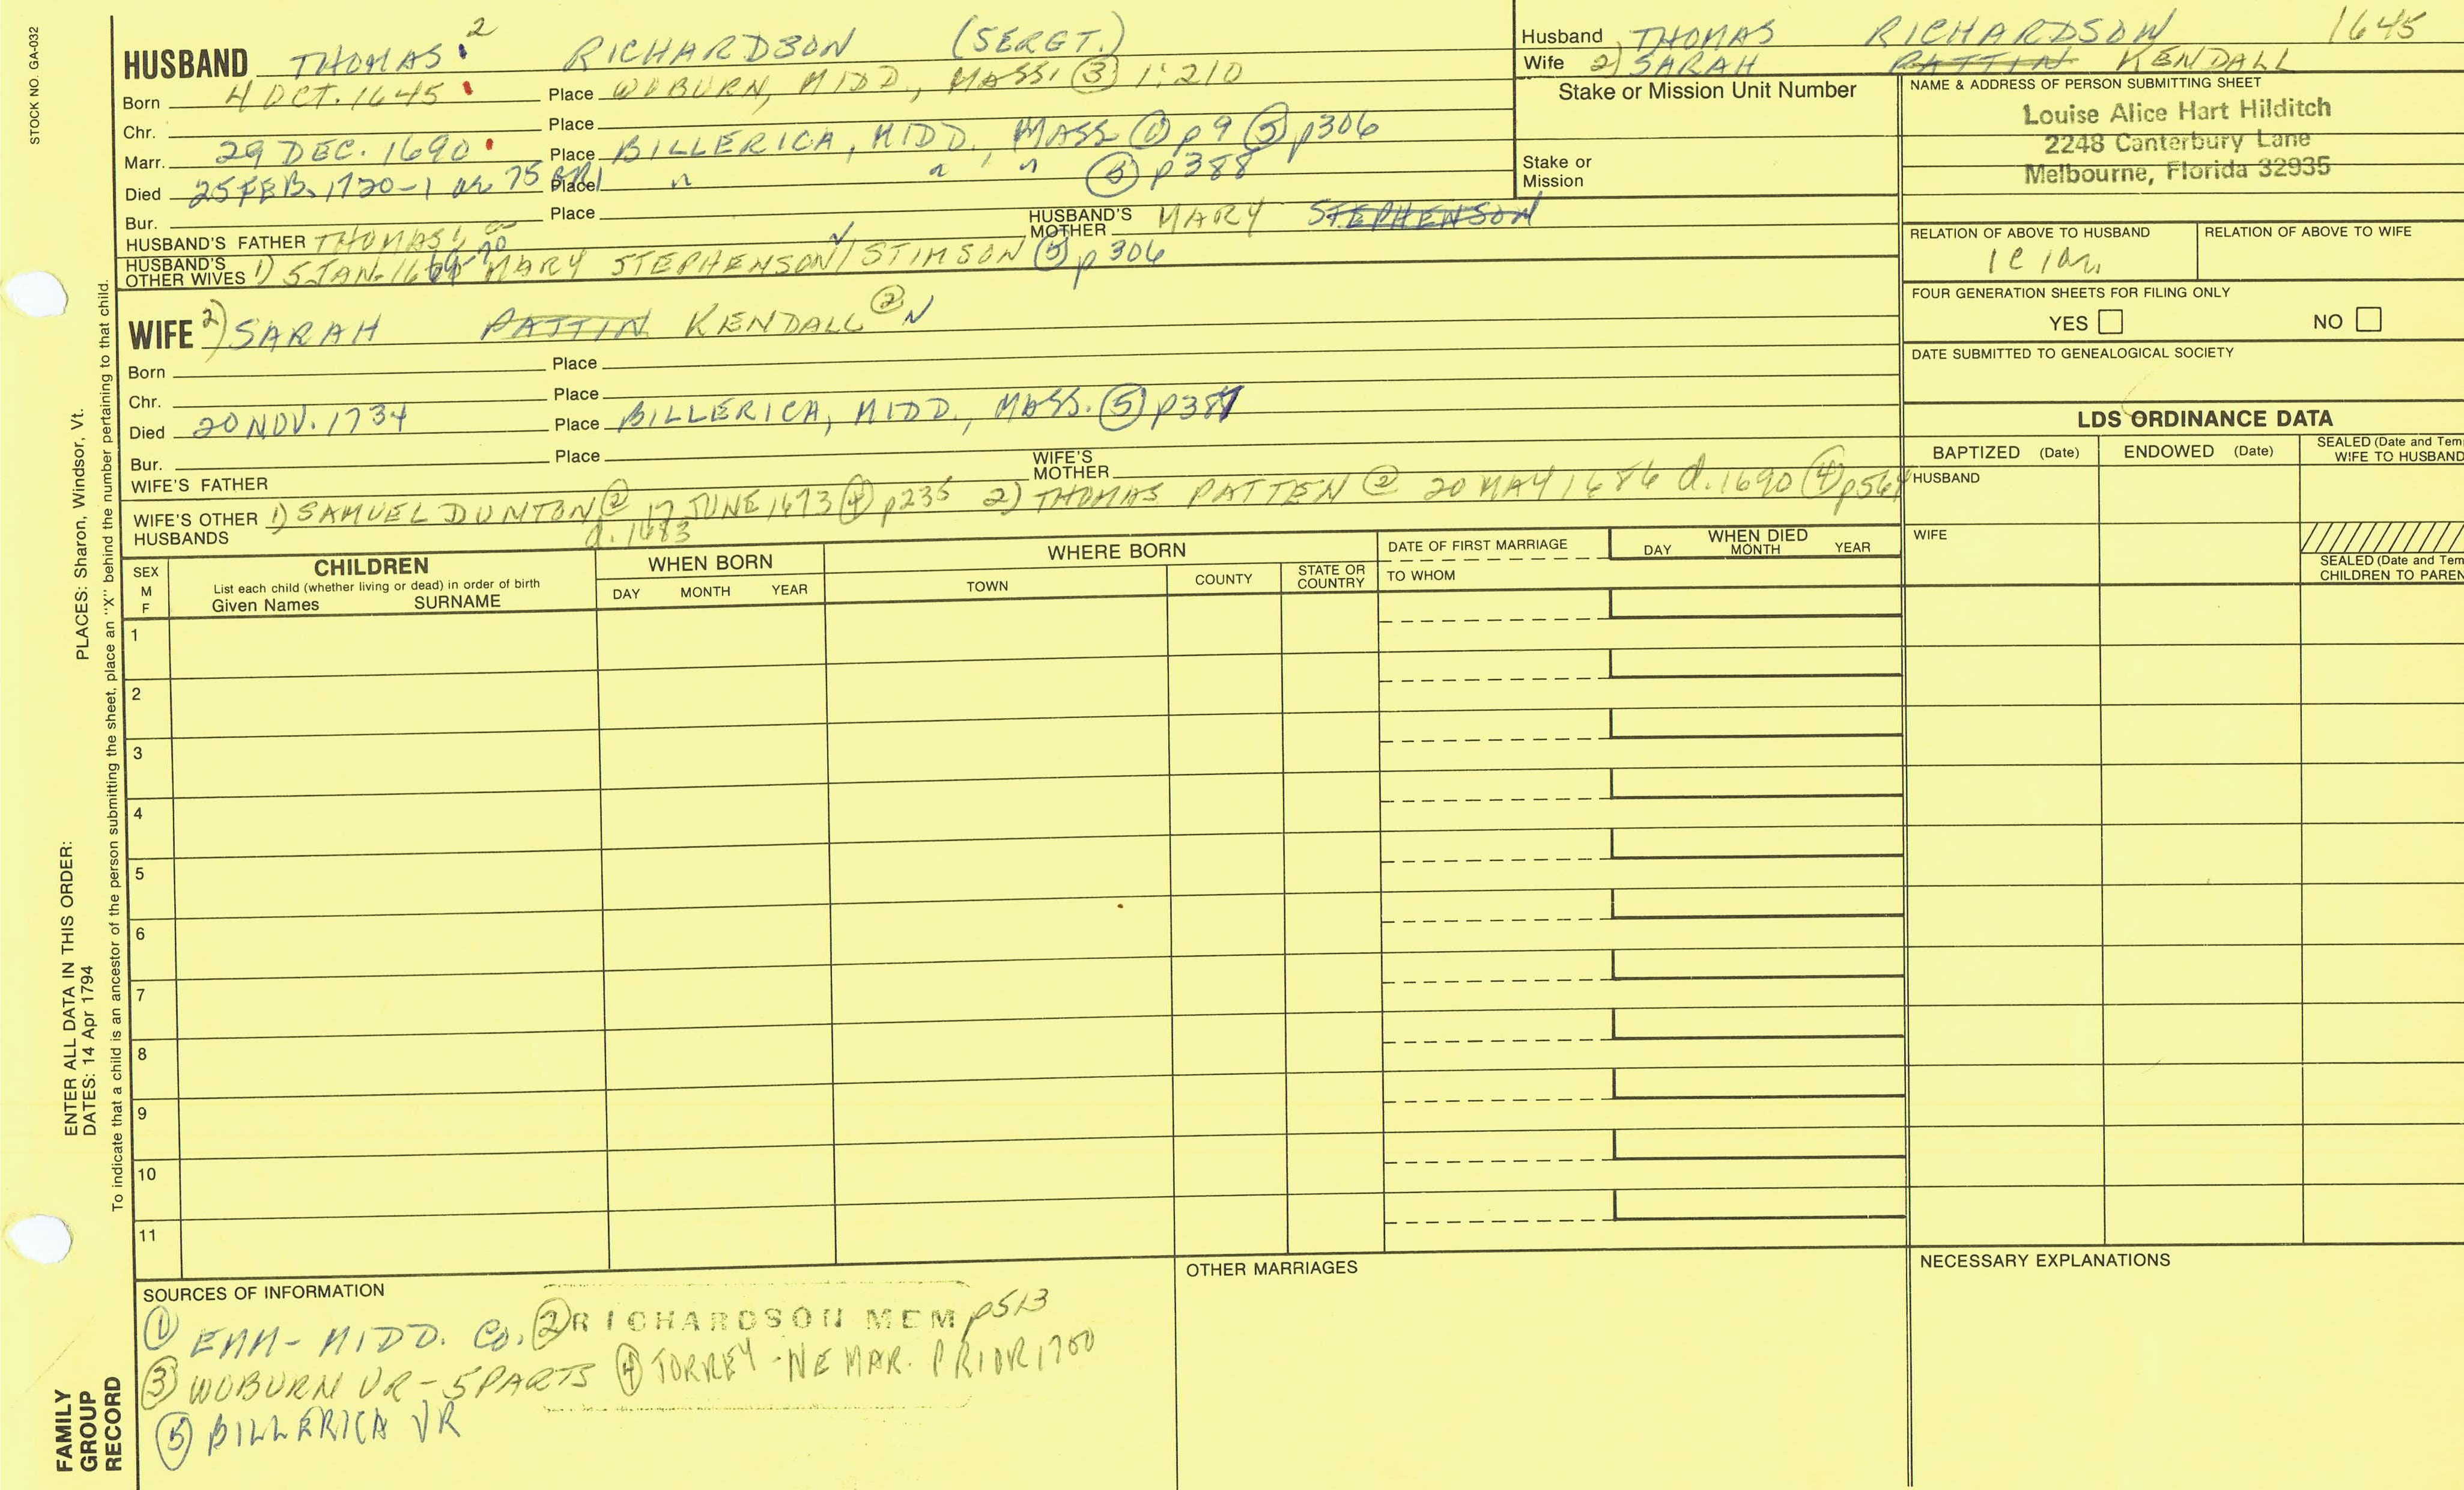 STOCK NO. GA-032
HUSBAND THOMAS 2 RICHARDSON (SERGT.)
Born 4 OCT. 1645 Place WOBURN, MIDD., MASS. ③ 1:210
Chr. Place
Marr. 29 DEC. 1690 Place BILLERICA, MIDD., MASS ① p9 ⑤ p306
Died 25 FEB. 1720-1 ae 75 GR1 Place " " " ⑤ p388
Bur. Place
HUSBAND'S FATHER THOMAS 1 HUSBAND'S MOTHER MARY STEPHENSON
HUSBAND'S OTHER WIVES 1) 5 JAN. 1669-70 MARY STEPHENSON/STIMSON ⑤ p306
WIFE 2) SARAH PATTIN KENDALL ②
Born Place
Chr. Place
Died 20 NOV. 1734 Place BILLERICA, MIDD., MASS. ⑤ p387
Bur. Place
WIFE'S FATHER WIFE'S MOTHER
WIFE'S OTHER HUSBANDS 1) SAMUEL DUNTON ② 17 JUNE 1673 ④ p235 2) THOMAS PATTEN ② 20 MAY 1686 d. 1690 ④ p564
d. 1683
Husband THOMAS RICHARDSON 1645
Wife 2) SARAH PATTIN KENDALL
Stake or Mission Unit Number
Stake or
Mission
NAME & ADDRESS OF PERSON SUBMITTING SHEET
Louise Alice Hart Hilditch
2248 Canterbury Lane
Melbourne, Florida 32935
RELATION OF ABOVE TO HUSBAND RELATION OF ABOVE TO WIFE
FOUR GENERATION SHEETS FOR FILING ONLY
YES NO
DATE SUBMITTED TO GENEALOGICAL SOCIETY
LDS ORDINANCE DATA
BAPTIZED (Date) ENDOWED (Date) SEALED (Date and Tem
WIFE TO HUSBAND
HUSBAND
WIFE
SEALED (Date and Tem
CHILDREN TO PAREN
SEX
M
F
CHILDREN
List each child (whether living or dead) in order of birth
Given Names SURNAME
WHEN BORN
DAY MONTH YEAR
WHERE BORN
TOWN COUNTY STATE OR COUNTRY
DATE OF FIRST MARRIAGE
TO WHOM
WHEN DIED
DAY MONTH YEAR
1
2
3
4
5
6
7
8
9
10
11
SOURCES OF INFORMATION
① EMM- MIDD. CO. ② RICHARDSON MEM p513
③ WOBURN VR - 5 PARTS ④ TORREY - NE MAR. PRIOR 1700
⑤ BILLERICA VR
OTHER MARRIAGES
NECESSARY EXPLANATIONS
PLACES: Sharon, Windsor, Vt.
ENTER ALL DATA IN THIS ORDER:
DATES: 14 Apr 1794
To indicate that a child is an ancestor of the person submitting the sheet, place an "X" behind the number pertaining to that child.
FAMILY
GROUP
RECORD